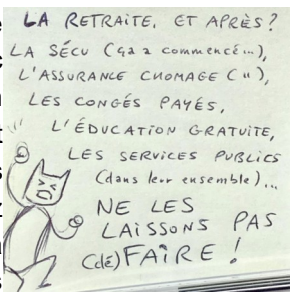 LA RETRAITE, ET APRÈS ?
LA SÉCU (ça a commencé...),
L'ASSURANCE CHOMAGE ("),
LES CONGÉS PAYÉS,
L'ÉDUCATION GRATUITE,
LES SERVICES PUBLICS
(dans leur ensemble)...
NE LES
LAISSONS PAS
(dé)FAIRE !